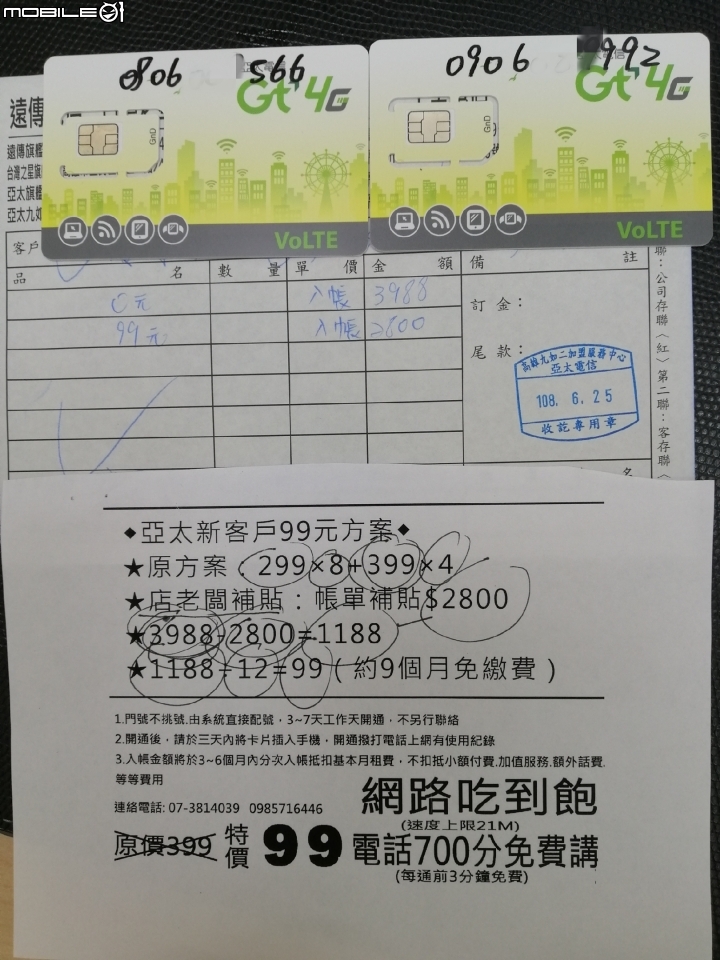 MOBILE01
0806 566
0906 992
亞太電信
Gt 4G
GnD
VoLTE
亞太電信
Gt 4G
GnD
VoLTE
遠傳
遠傳旗艦
台灣之星旗
亞太旗艦
亞太九如
客戶
品名 數量 單價 金額 備註
0元 入帳 3988
99元 入帳 2800
訂金：
尾款：
高雄九如二加盟服務中心
亞太電信
108. 6. 25
收訖專用章
聯：公司存聯〈紅〉第二聯：客存聯〈
名
◆亞太新客戶99元方案◆
★原方案：299×8+399×4
★店老闆補貼：帳單補貼$2800
★3988-2800=1188
★1188÷12=99（約9個月免繳費）
1.門號不挑號.由系統直接配號，3~7天工作天開通，不另行聯絡
2.開通後，請於三天內將卡片插入手機，開通撥打電話上網有使用紀錄
3.入帳金額將於3~6個月內分次入帳抵扣基本月租費，不扣抵小額付費.加值服務.額外話費.
等等費用
連絡電話: 07-3814039 0985716446
網路吃到飽
(速度上限21M)
原價399 特價 99 電話700分免費講
(每通前3分鐘免費)